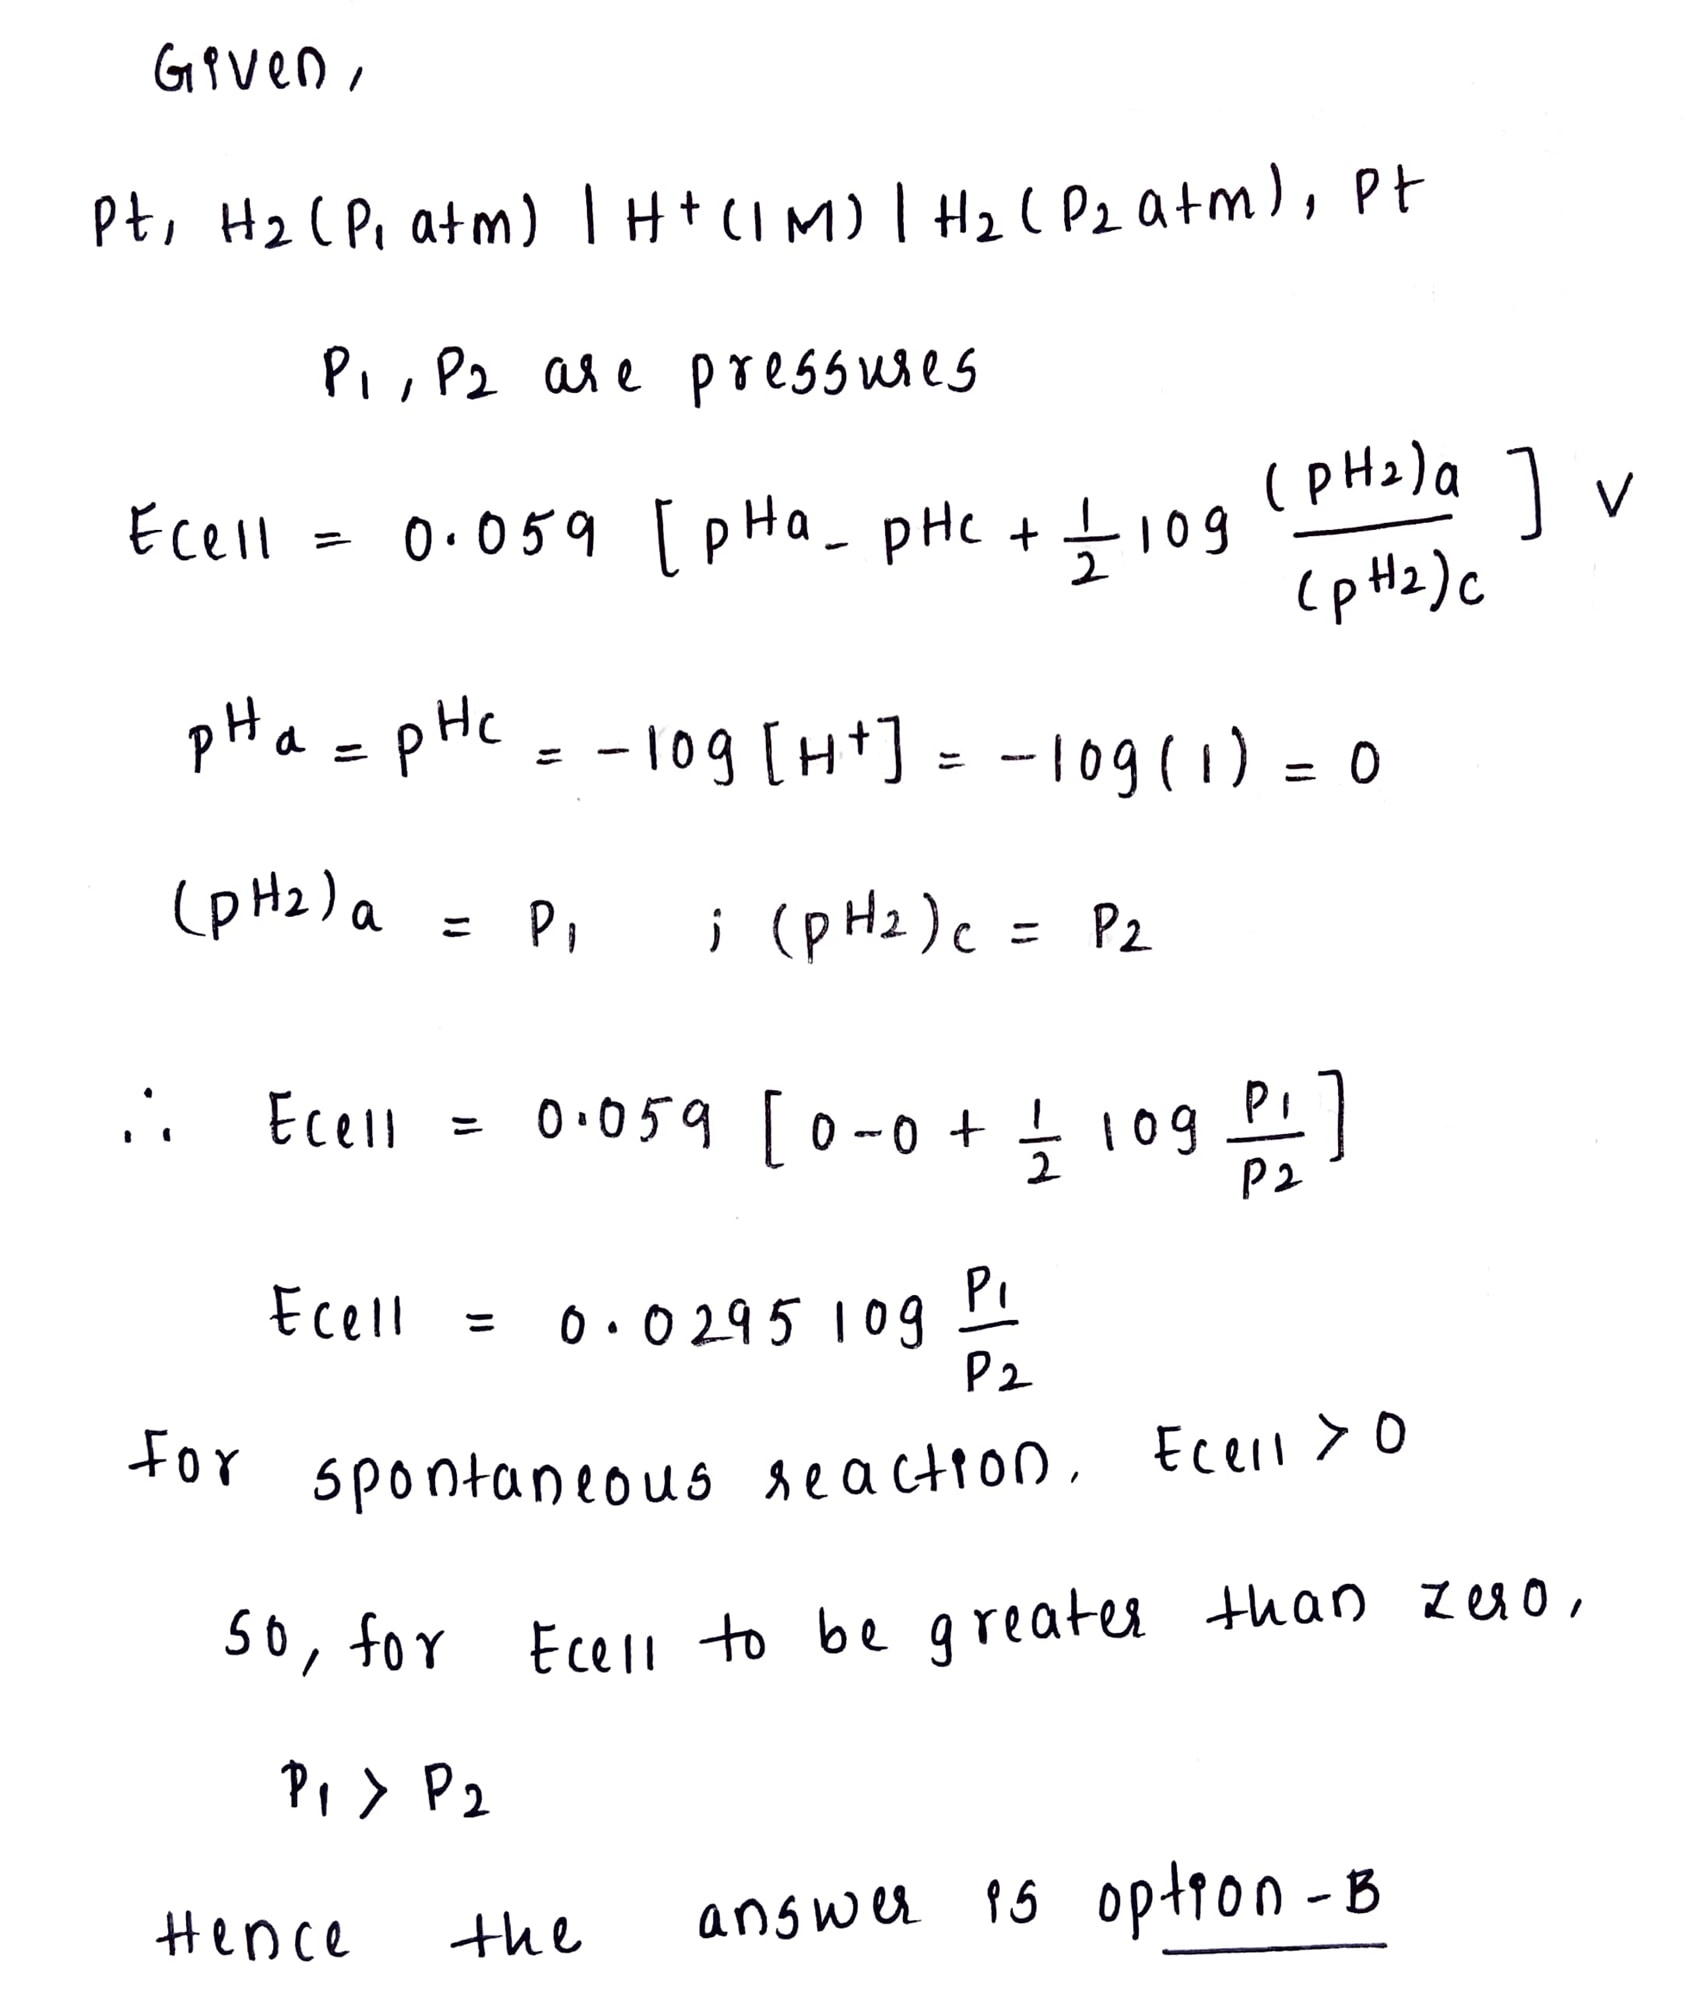 Given,
Pt, H2 (P1 atm) | H+ (1M) | H2 (P2 atm), Pt
P1, P2 are pressures
Ecell = 0.059 [pHa - pHc + 1/2 log (pH2)a/(pH2)c] V
pHa = pHc = -log [H+] = -log(1) = 0
(pH2)a = P1 ; (pH2)c = P2
∴ Ecell = 0.059 [0-0 + 1/2 log P1/P2]
Ecell = 0.0295 log P1/P2
For spontaneous reaction, Ecell > 0
so, for Ecell to be greater than zero,
P1 > P2
Hence the answer is option-B